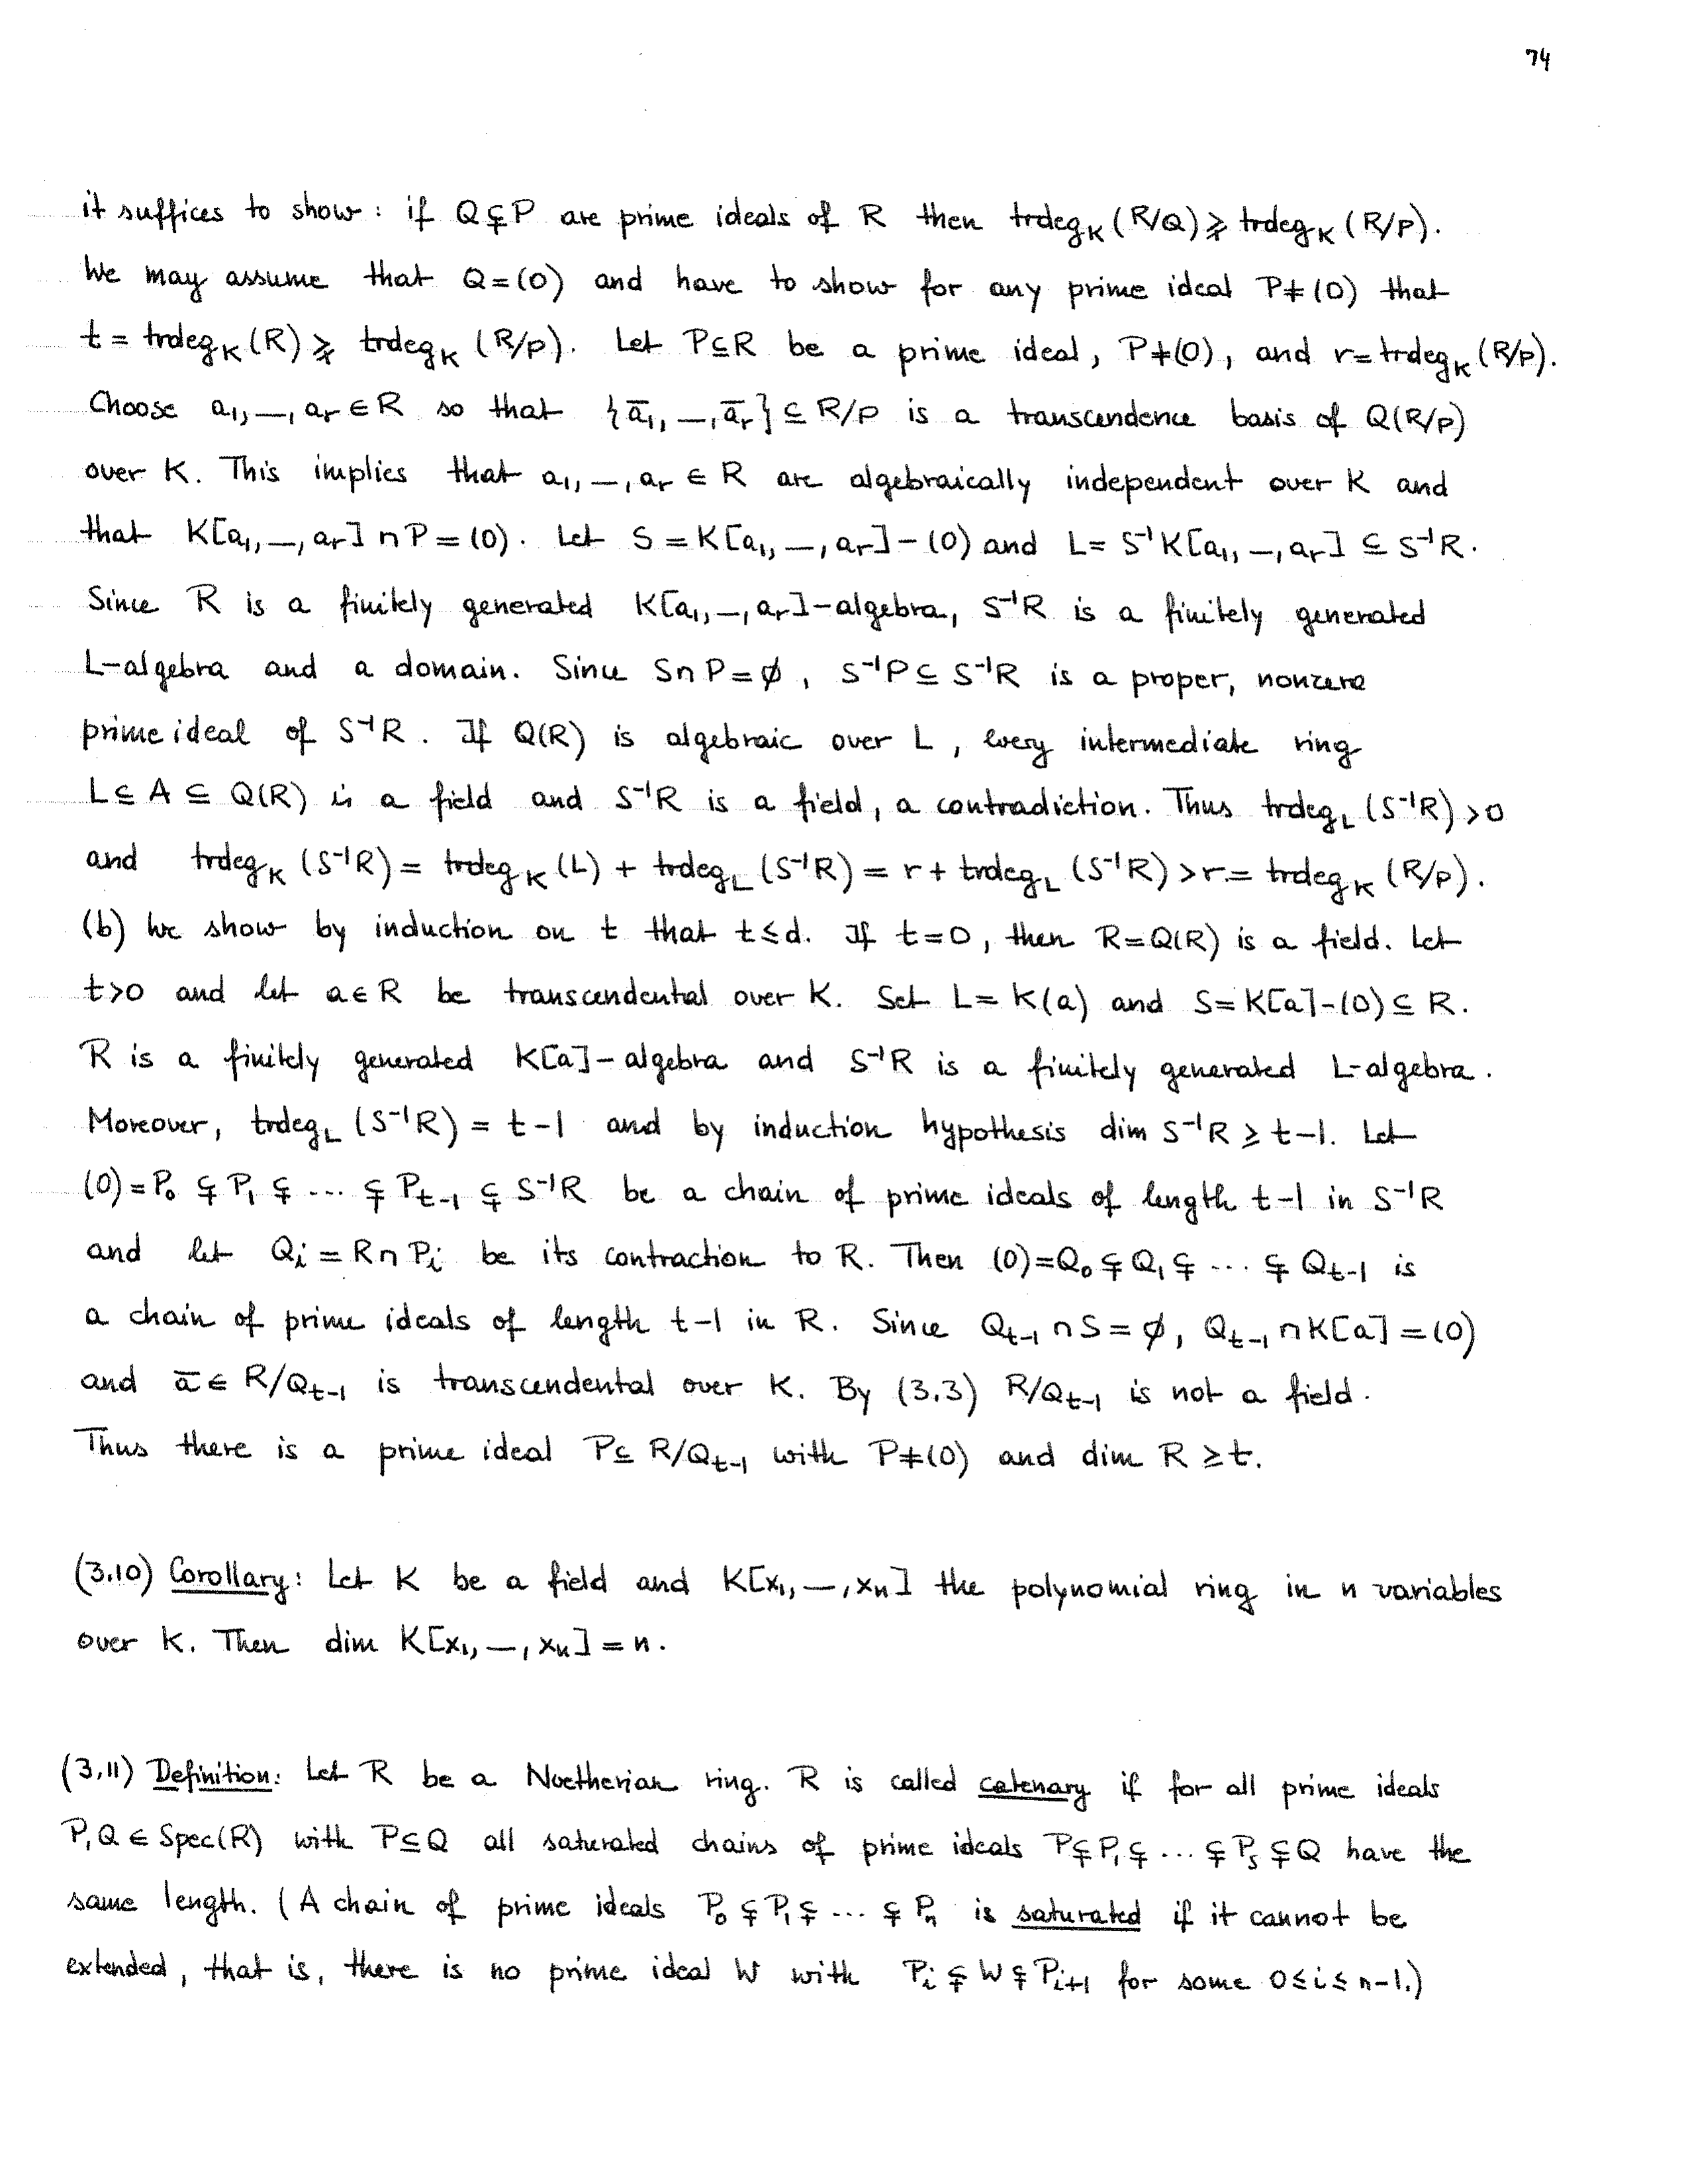 74
it suffices to show: if Q⊊P are prime ideals of R then trdeg_K(R/Q) ⪈ trdeg_K(R/P).
We may assume that Q=(0) and have to show for any prime ideal P≠(0) that
t = trdeg_K(R) ⪈ trdeg_K(R/P). Let P⊆R be a prime ideal, P≠(0), and r=trdeg_K(R/P).
Choose a₁,—,aᵣ∈R so that {ā₁,—,āᵣ}⊆R/P is a transcendence basis of Q(R/P)
over K. This implies that a₁,—,aᵣ∈R are algebraically independent over K and
that K[a₁,—,aᵣ]∩P=(0). Let S=K[a₁,—,aᵣ]-(0) and L=S⁻¹K[a₁,—,aᵣ]⊆S⁻¹R.
Since R is a finitely generated K[a₁,—,aᵣ]-algebra, S⁻¹R is a finitely generated
L-algebra and a domain. Since S∩P=∅, S⁻¹P⊆S⁻¹R is a proper, nonzero
prime ideal of S⁻¹R. If Q(R) is algebraic over L, every intermediate ring
L⊆A⊆Q(R) is a field and S⁻¹R is a field, a contradiction. Thus trdeg_L(S⁻¹R)>0
and trdeg_K(S⁻¹R) = trdeg_K(L) + trdeg_L(S⁻¹R) = r + trdeg_L(S⁻¹R) > r = trdeg_K(R/P).
(b) We show by induction on t that t≤d. If t=0, then R=Q(R) is a field. Let
t>0 and let a∈R be transcendental over K. Set L=K(a) and S=K[a]-(0)⊆R.
R is a finitely generated K[a]-algebra and S⁻¹R is a finitely generated L-algebra.
Moreover, trdeg_L(S⁻¹R) = t-1 and by induction hypothesis dim S⁻¹R ≥ t-1. Let
(0)=P₀⊊P₁⊊ ... ⊊P_{t-1}⊊S⁻¹R be a chain of prime ideals of length t-1 in S⁻¹R
and let Qᵢ=R∩Pᵢ be its contraction to R. Then (0)=Q₀⊊Q₁⊊ ... ⊊Q_{t-1} is
a chain of prime ideals of length t-1 in R. Since Q_{t-1}∩S=∅, Q_{t-1}∩K[a]=(0)
and ā∈R/Q_{t-1} is transcendental over K. By (3.3) R/Q_{t-1} is not a field.
Thus there is a prime ideal P⊆R/Q_{t-1} with P≠(0) and dim R≥t.
(3.10) Corollary: Let K be a field and K[x₁,—,xₙ] the polynomial ring in n variables
over K. Then dim K[x₁,—,xₙ]=n.
(3.11) Definition: Let R be a Noetherian ring. R is called catenary if for all prime ideals
P,Q∈Spec(R) with P⊆Q all saturated chains of prime ideals P⊊P₁⊊ ... ⊊Pₛ⊊Q have the
same length. (A chain of prime ideals P₀⊊P₁⊊ ... ⊊Pₙ is saturated if it cannot be
extended, that is, there is no prime ideal W with Pᵢ⊊W⊊Pᵢ₊₁ for some 0≤i≤n-1.)